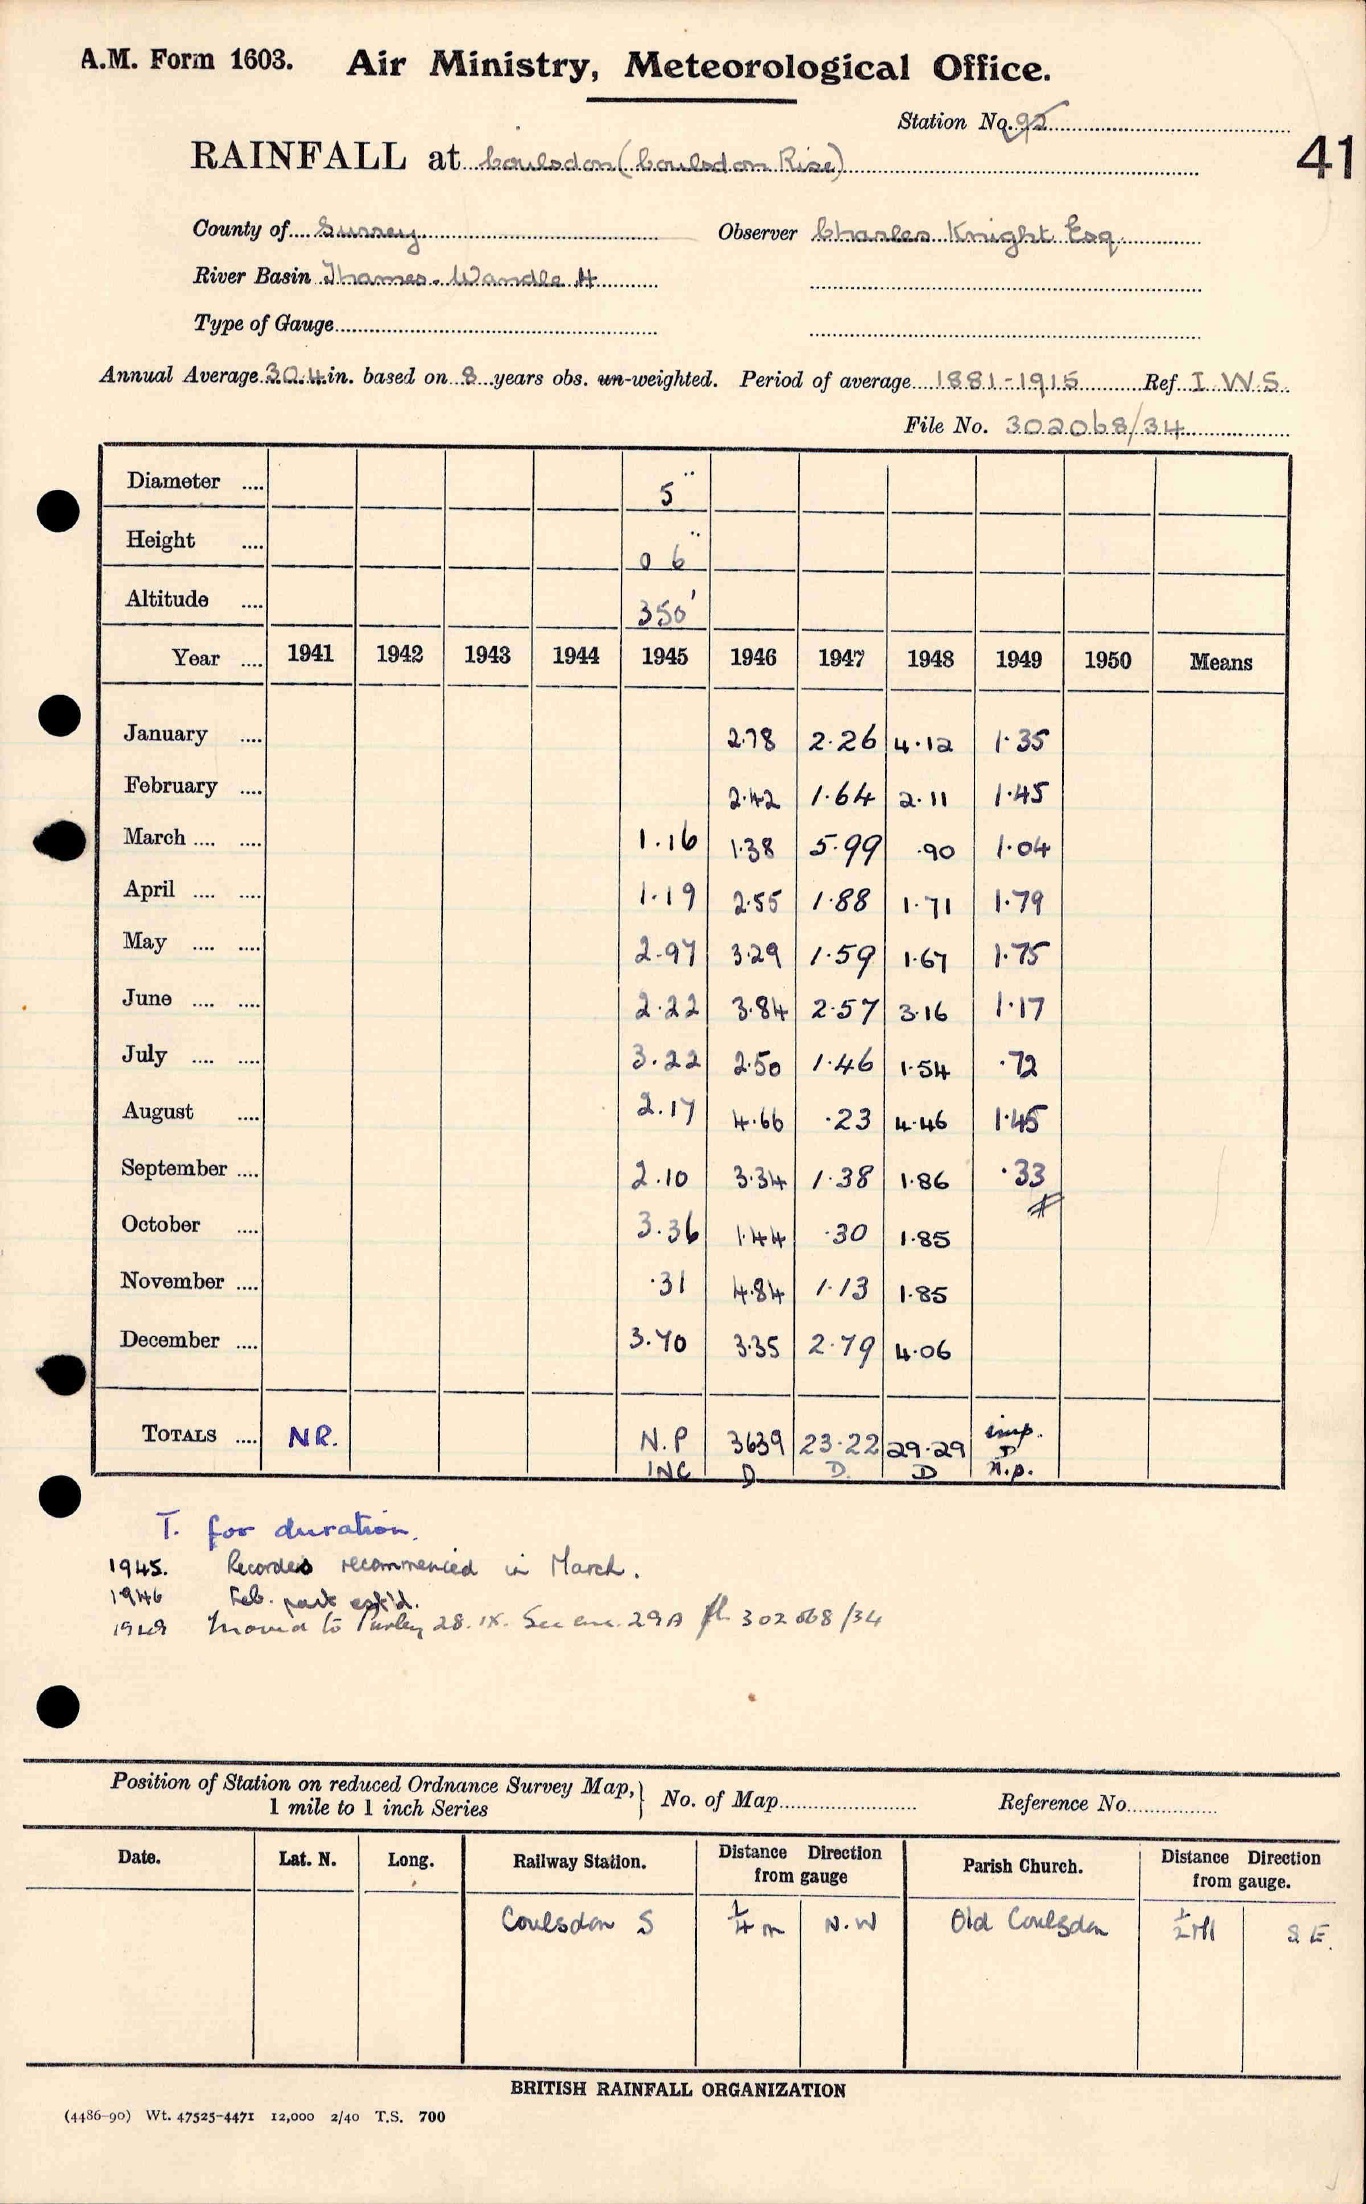 A.M. Form 1603. Air Ministry, Meteorological Office.
Station No. 92
RAINFALL at Coulsdon (Coulsdon Rise)
41
County of Surrey Observer Charles Knight Esq
River Basin Thames. Wandle 4
Type of Gauge
Annual Average 30.4 in. based on 8 years obs. un-weighted. Period of average 1881-1915 Ref I.W.S.
File No. 302068/34
Diameter .... 5"
Height .... 0 6"
Altitude .... 350'
Year .... 1941 1942 1943 1944 1945 1946 1947 1948 1949 1950 Means
January .... 2.78 2.26 4.12 1.35
February .... 2.42 1.64 2.11 1.45
March .... .... 1.16 1.38 5.99 .90 1.04
April .... .... 1.19 2.55 1.88 1.71 1.79
May .... .... 2.97 3.29 1.59 1.67 1.75
June .... .... 2.22 3.84 2.57 3.16 1.17
July .... .... 3.22 2.50 1.46 1.54 .72
August .... 2.17 4.66 .23 4.46 1.45
September .... 2.10 3.34 1.38 1.86 .33
October .... 3.36 1.44 .30 1.85
November .... .31 4.84 1.13 1.85
December .... 3.70 3.35 2.79 4.06
TOTALS .... NR. N.P INC 3639 D 23.22 D. 29.29 D imp. D n.p.
T. for duration.
1945. Records recommenced in March.
1946 Feb. part est'd.
1949 Moved to Purley 28.IX. See enc. 29A 302068/34
Position of Station on reduced Ordnance Survey Map, 1 mile to 1 inch Series } No. of Map Reference No.
Date. Lat. N. Long. Railway Station. Distance Direction from gauge Parish Church. Distance Direction from gauge.
Coulsdon S 1/4 m N.W Old Coulsdon 1/2 M S E.
BRITISH RAINFALL ORGANIZATION
(4486-90) Wt. 47525-4471 12,000 2/40 T.S. 700